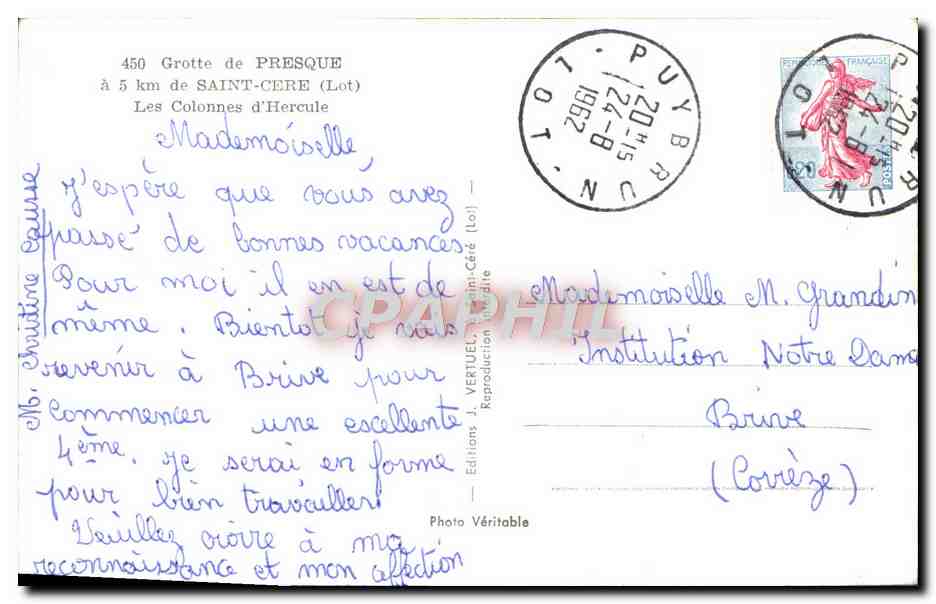 450 Grotte de PRESQUE
à 5 km de SAINT-CERE (Lot)
Les Colonnes d'Hercule
Mademoiselle
J'espère que vous avez
passé de bonnes vacances
Pour moi il en est de
même. Bientôt je vais
revenir à Brive pour
commencer une excellente
4ème. Je serai en forme
pour bien travailler.
Veuillez croire à ma
reconnaissance et mon affection
M. Christine Causse
Editions J. VERTUEL, Saint-Céré (Lot)
Reproduction interdite
Photo Véritable
PUYBRUN
LOT
20H15
24-8
1962
PUYBRUN
LOT
20H15
24-8
1962
FRANÇAISE
POSTES
0,20
Mademoiselle M. Grandin
Institution Notre Dame
Brive
(Corrèze)
CPAPHIL